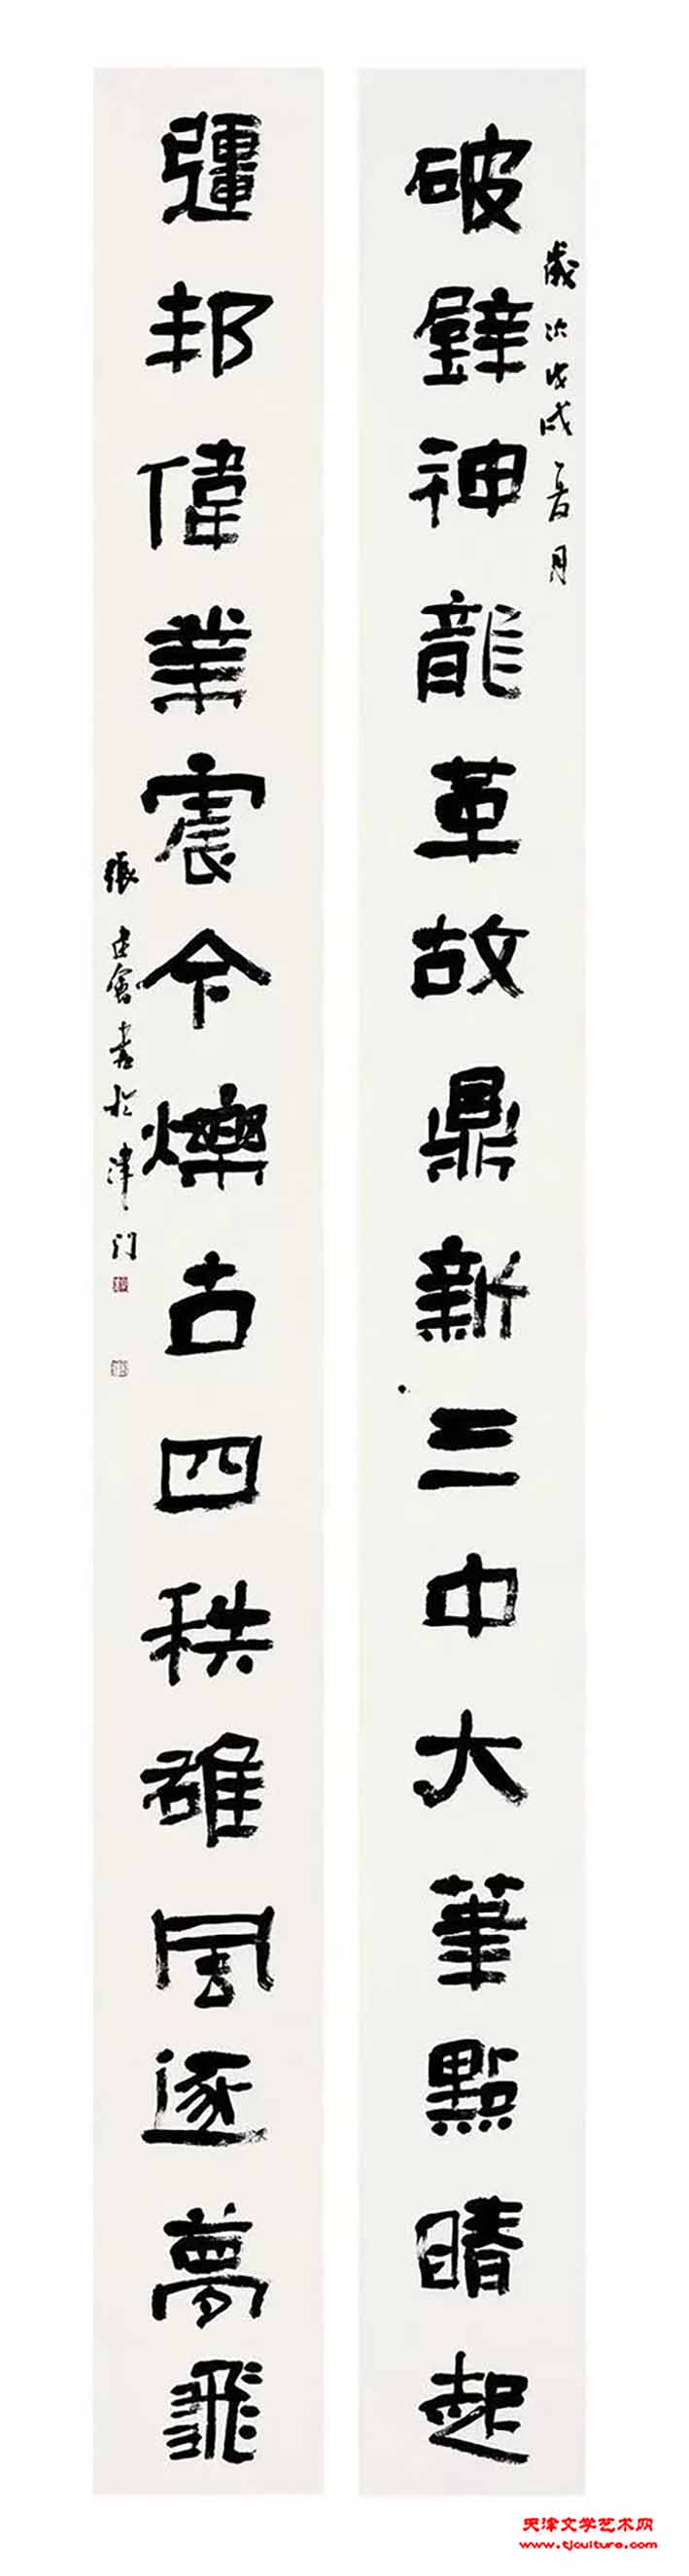 歲次戊戌夏月
破壁神龍革故鼎新三中大筆點睛起
彊邦偉業震今爍古四秩雄風逐夢飛
張建會書於津門
天津文学艺术网
www.tjculture.com